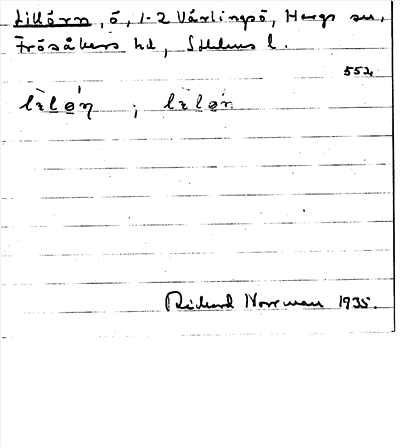 Lillörn, ö, 1-2 Växlingsö, Hargs sn,
Frösåkers hd, Sthlms l.
552
Richard Norrman 1935.